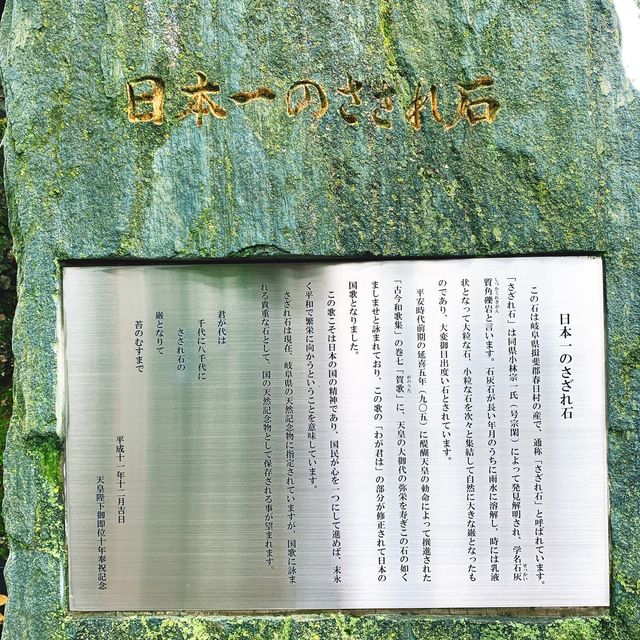 日本一のさざれ石
日本一のさざれ石
この石は岐阜県揖斐郡春日村の産で、通称「さざれ石」と呼ばれています。
「さざれ石」は同県小林宗一氏(号宗閑)によって発見解明され、学名石灰
せっかい
質角礫岩と言います。石灰石が長い年月のうちに雨水に溶解し、時には乳液
しつかくれきがん
状となって大粒な石、小粒な石を次々と集結して自然に大きな巌となったも
のであり、大変御目出度い石とされています。
平安時代前期の延喜五年(九〇五)に醍醐天皇の勅命によって撰進された
「古今和歌集」の巻七「賀歌」に、天皇の大御代の弥栄を寿ぎこの石の如く
がのうた
ましませと詠まれており、この歌の「わが君は」の部分が修正されて日本の
国歌となりました。
この歌こそは日本の国の精神であり、国民が心を一つにして進めば、末永
く平和で繁栄に向かうということを意味しています。
さざれ石は現在、岐阜県の天然記念物に指定されていますが、国歌に詠ま
れる貴重な石として、国の天然記念物として保存される事が望まれます。
君が代は
千代に八千代に
さざれ石の
巌となりて
苔のむすまで
平成十一年十二月吉日
天皇陛下御即位十年奉祝記念